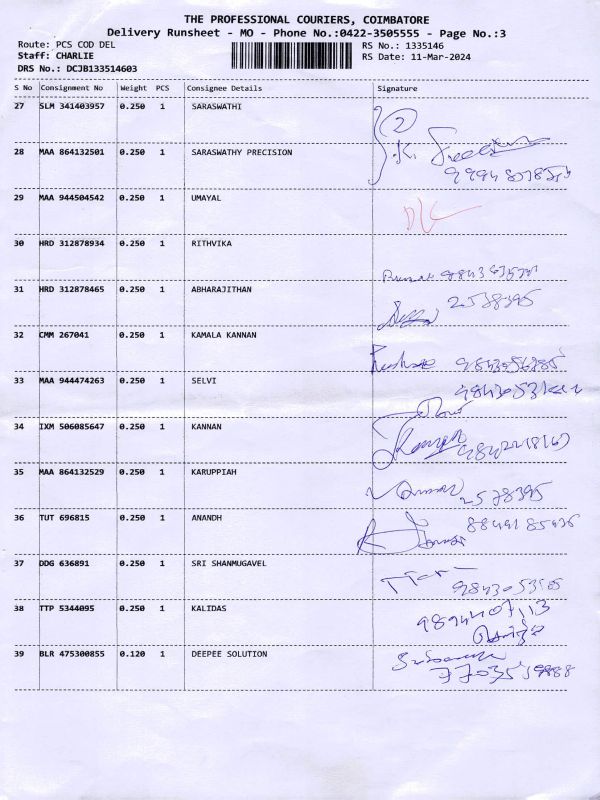 THE PROFESSIONAL COURIERS, COIMBATORE
Delivery Runsheet - MO - Phone No.:0422-3505555 - Page No.:3
Route: PCS COD DEL
RS No.: 1335146
Staff: CHARLIE
RS Date: 11-Mar-2024
DRS No.: DCJB133514603
S No Consignment No Weight PCS Consignee Details Signature
27 SLM 341403957 0.250 1 SARASWATHI
2
28 MAA 864132501 0.250 1 SARASWATHY PRECISION
29 MAA 944504542 0.250 1 UMAYAL
30 HRD 312878934 0.250 1 RITHVIKA
31 HRD 312878465 0.250 1 ABHARAJITHAN
2578395
32 CMM 267041 0.250 1 KAMALA KANNAN
33 MAA 944474263 0.250 1 SELVI
34 IXM 506085647 0.250 1 KANNAN
35 MAA 864132529 0.250 1 KARUPPIAH
2578395
36 TUT 696815 0.250 1 ANANDH
37 DDG 636891 0.250 1 SRI SHANMUGAVEL
38 TTP 5344095 0.250 1 KALIDAS
39 BLR 475300855 0.120 1 DEEPEE SOLUTION